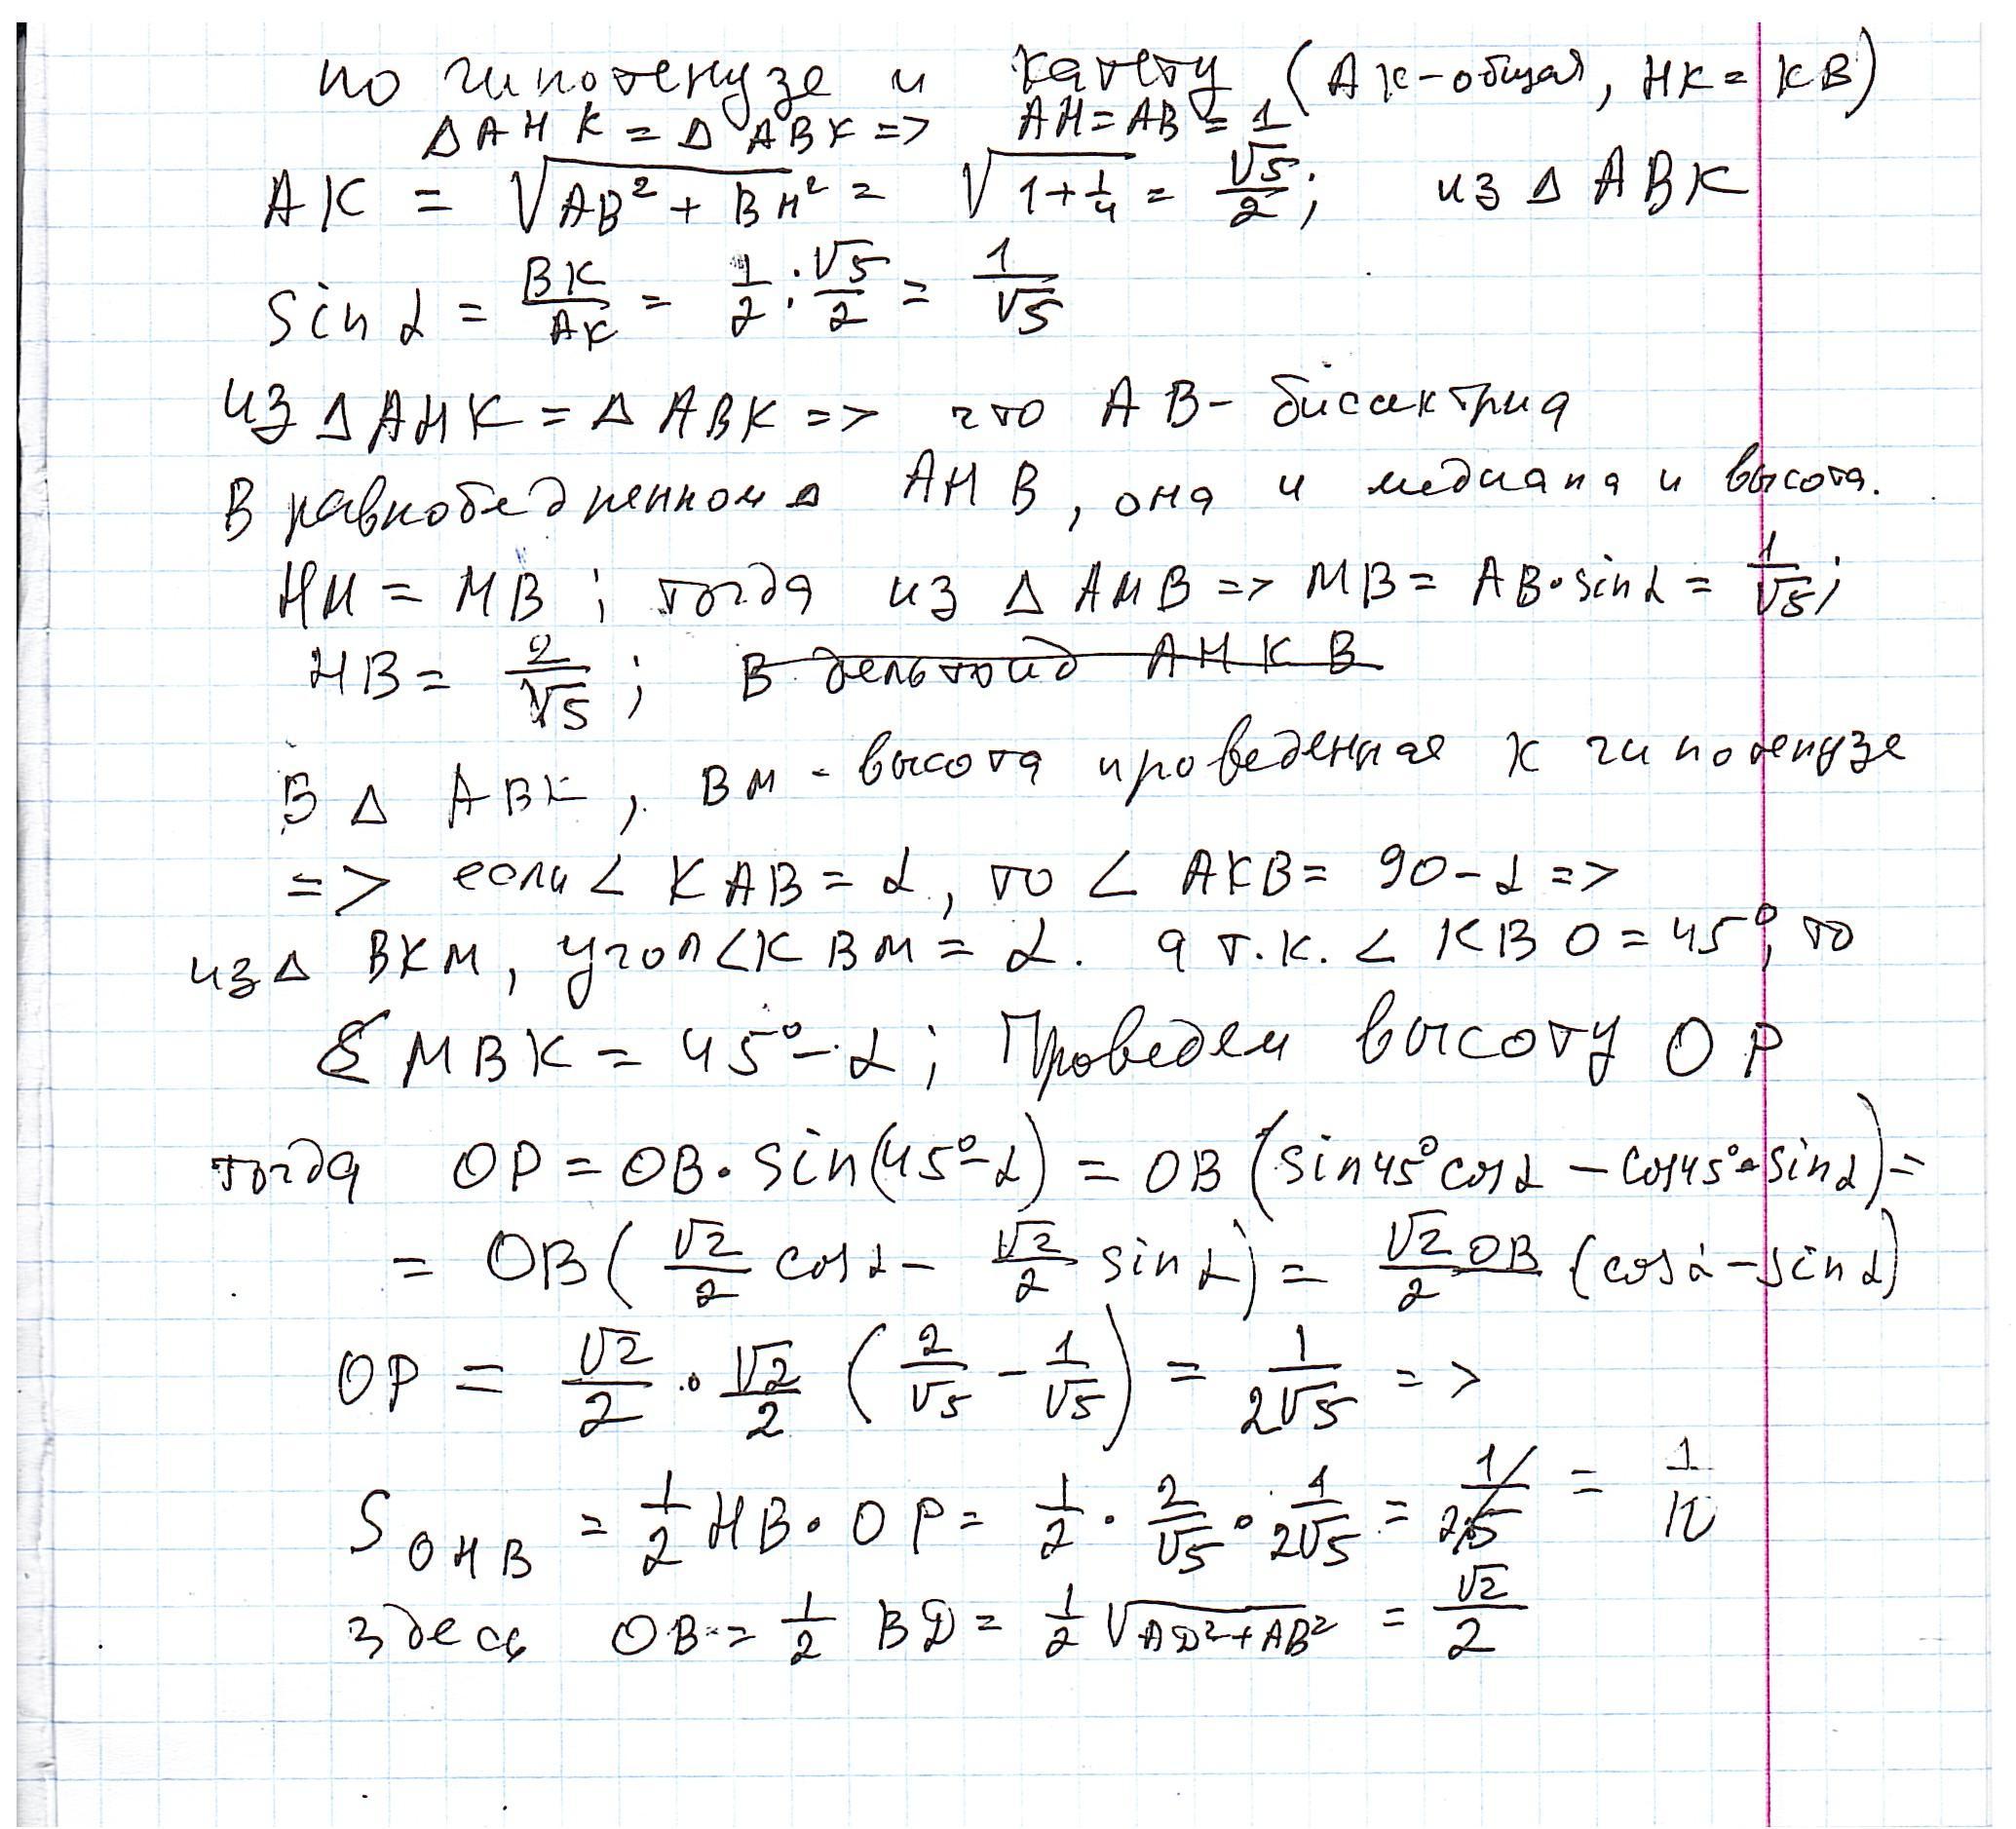 по гипотенузе и катету (AK-общая, HK = KB)
Δ AHK = Δ ABK => AH = AB = 1
AK = √(AB² + BH²) = √(1+1/4) = √5/2; из Δ ABK
sin α = BK/AK = 1/2 : √5/2 = 1/√5
из Δ AHK = Δ ABK => что AB - бисектриа
В равнобедренном Δ AHB, она и медиана и высота.
HM = MB; тогда из Δ AMB => MB = AB·sin α = 1/√5;
HB = 2/√5; В дельтоид AHKB
В Δ ABK, BM - высота проведенная к гипотенузе
=> если ∠ KAB = α, то ∠ AKB = 90-α =>
из Δ BKM, угол ∠KBM = α. а т.к. ∠ KBO = 45°, то
∠ MBK = 45°-α; Проведем высоту OP
тогда OP = OB·sin(45°-α) = OB (sin45°cosα - cos45°·sinα) =
= OB (√2/2 cosα - √2/2 sin α) = √2/2 OB (cosα - sinα)
OP = √2/2 · √2/2 (2/√5 - 1/√5) = 1/2√5 =>
S OHB = 1/2 HB·OP = 1/2 · 2/√5 · 1/2√5 = 1/2·5 = 1/10
здесь OB = 1/2 BD = 1/2 √(AD²+AB²) = √2/2